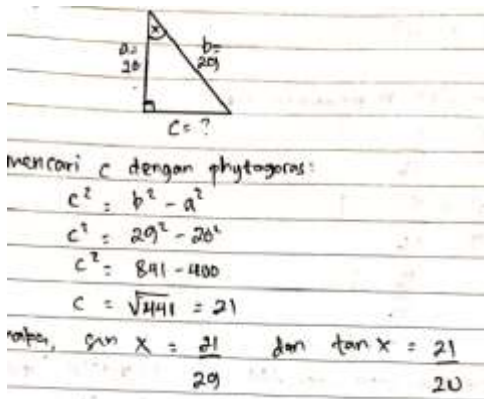 x
a= b=
20 29
c = ?
mencari c dengan phytagoras:
c² = b² - a²
c² = 29² - 20²
c² = 841 - 400
c = √441 = 21
maka, sin x = 21/29 dan tan x = 21/20